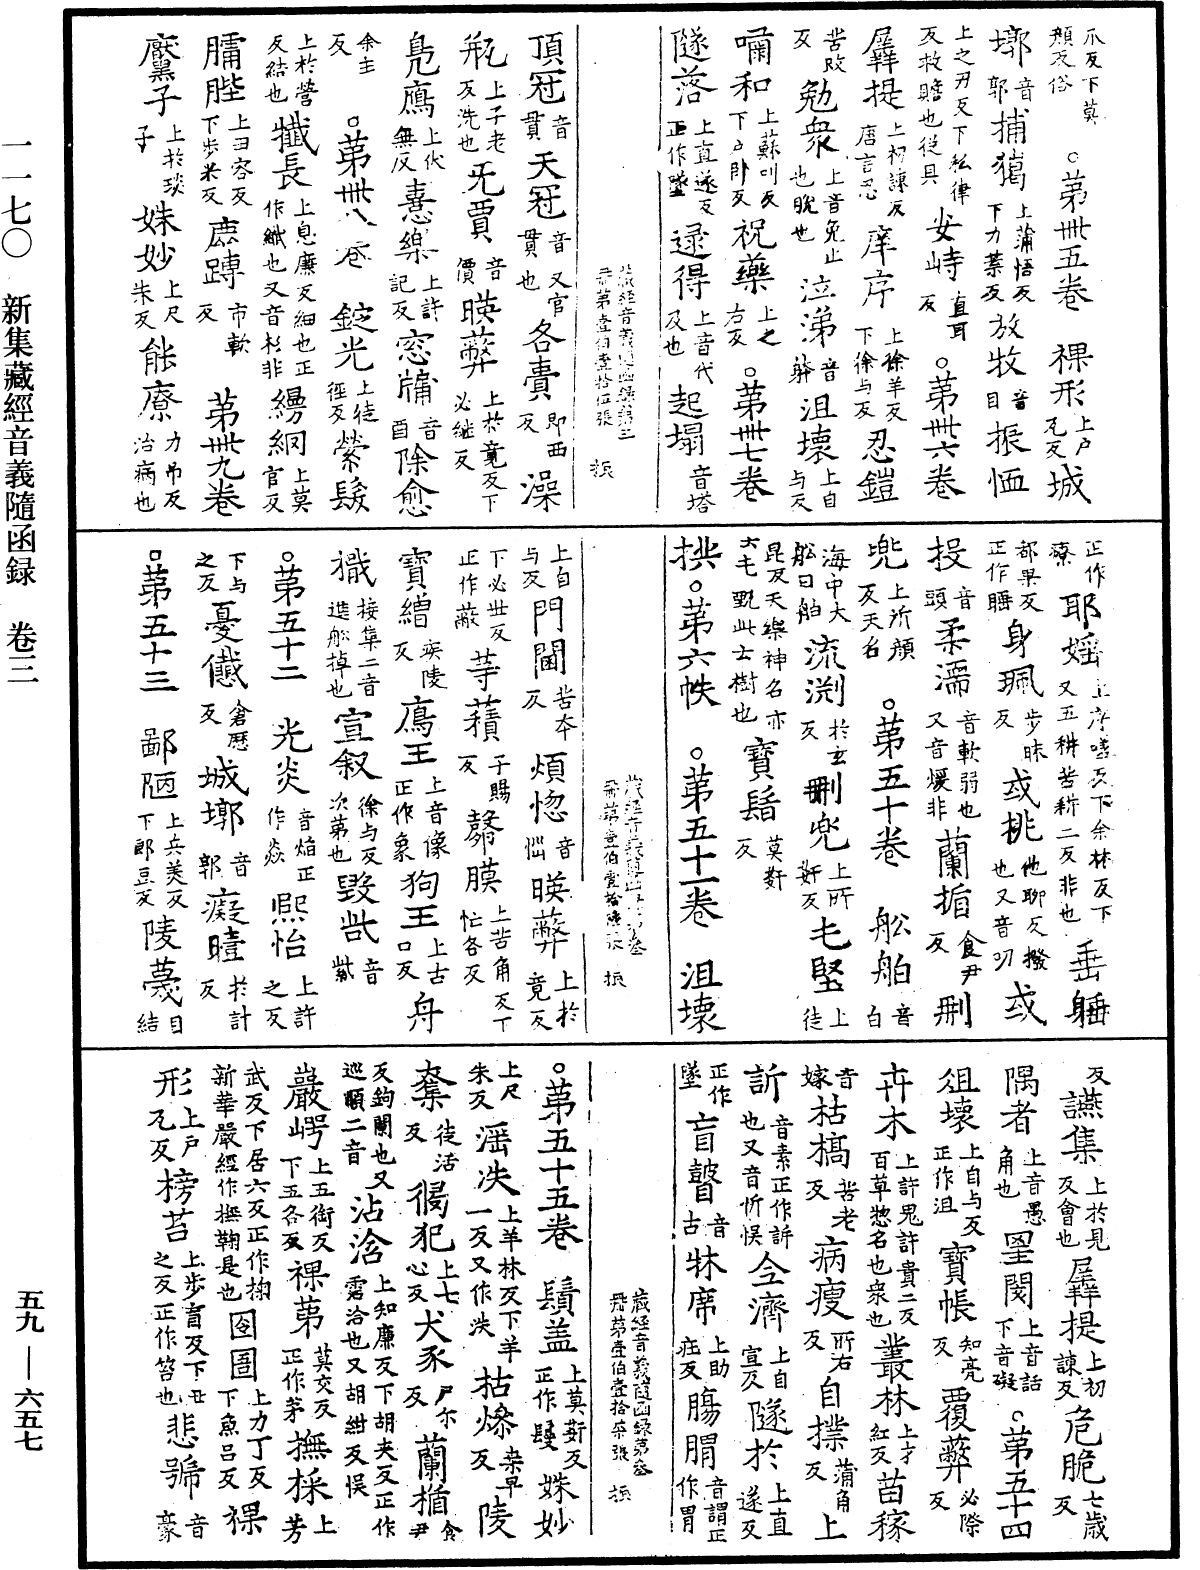 一一七〇　新集藏經音義隨函録　卷三
五九—六五七
爪反下莫
頰反俗　○第卌五卷　祼形上户瓦反城
墎音郭捕獦上蒲悟反下力葉反放牧音目振恤
上之刃反下私律反救贍也從貝安峙直耳反　○第卌六卷
羼提上初諫反唐言忍庠序上徐羊反下徐与反忍鎧
苦改反勉衆上音免止也脫也泣涕音躰沮壞上自与反
嘯和上蘇叫反下户卧反祝藥上之右反　○第卌七卷
隧落上直遂反正作墜逯得上音代及也起塌音塔
藏經音義隨函録第三
冊第壹伯壹拾伍張　振
頂冠音貫天冠音貫又官也各賷即西反澡
瓨上子老反洗也旡賈音價暎蔽上於竟反下必継反
鳬鴈上伏無反憙樂上許記反窓牖音酉除愈
余主反　○第卌八卷　錠光上徒徑反縈髮
上於營反結也㰇長上息廉反細也正作纖也又音杉非縵網上莫官反
𦟛䏶上丑容反下步米反鹿蹲市軟反　第卌九卷
黶子上於琰子姝妙上尺朱反能療力吊反治病也
正作療耶婬上序嗟反下余林反下又五耕苦耕二反非也垂睡
都果反正作睡身珮步昧反或桃他聊反撥也又音刀或
投音頭柔濡音軟弱也又音煗非蘭揗食尹反刪
兜上所顔反天名　○第五十卷　舩舶音白
海中大舩曰舶流渕於玄反刪兜上所姧反乇堅上徒
昆反天樂神名亦六乇甄此士樹也寶鬘莫姧反
拱　○第六帙　○第五十一卷　沮壞
藏經音義隨函録第叁
冊第壹伯壹拾陸張　振
上自与反門閫苦本反煩惚音惱暎蔽上於竟反
下必世反正作蔽䓁積子賜反髈膜上苦角反下忙各反
寶繒疾陵反鴈王上音像正作象狗王上古口反舟
檝接集二音進舩掉也宣叙徐与反次第也毀呰音紫
○第五十二　光炎音焰正作焱熙怡上許之反
下与之反憂慼倉歷反城墎音郭癡曀於計反
○第五十三　鄙陋上兵美反下郎豆反陵蔑目結
反讌集上於見反會也羼提上初諫反危脆七歲反
隅者上音愚角也罣閡上音話下音礙　○第五十四
俎壞上自与反正作沮寶帳知亮反覆蔽必際反
卉木上許鬼許貴二反百草惣名也衆也叢林上才紅反苗稼
音嫁枯槁苦老反病瘦所右反自撲蒲角反上
訴音素正作訴也又音忻悮令濟上自宣反隧於上直遂反
正作墜盲瞽音古牀席上助庄反腸䏝音謂正作胃
藏經音義隨函録第叁
冊第壹伯壹拾柒張　振
○第五十五卷　鬚盖上莫姧反正作鬘姝妙
上尺朱反滛泆上羊林反下羊一反又作泆拈燥桒早反陵
奪徒活反侵犯上七心反犬豕尸尔反蘭楯食尹
反鉤闌也又巡順二音沾洽上知廉反下胡夾反正作霑洽也又胡紺反悮
巖崿上五銜反下五各反祼第莫交反正作茅撫採上芳
武反下居六反正作掬新華嚴經作撫鞠是也囹圄上力丁反下魚吕反祼
形上户瓦反榜苔上步盲反下丑之反正作笞也悲號音豪